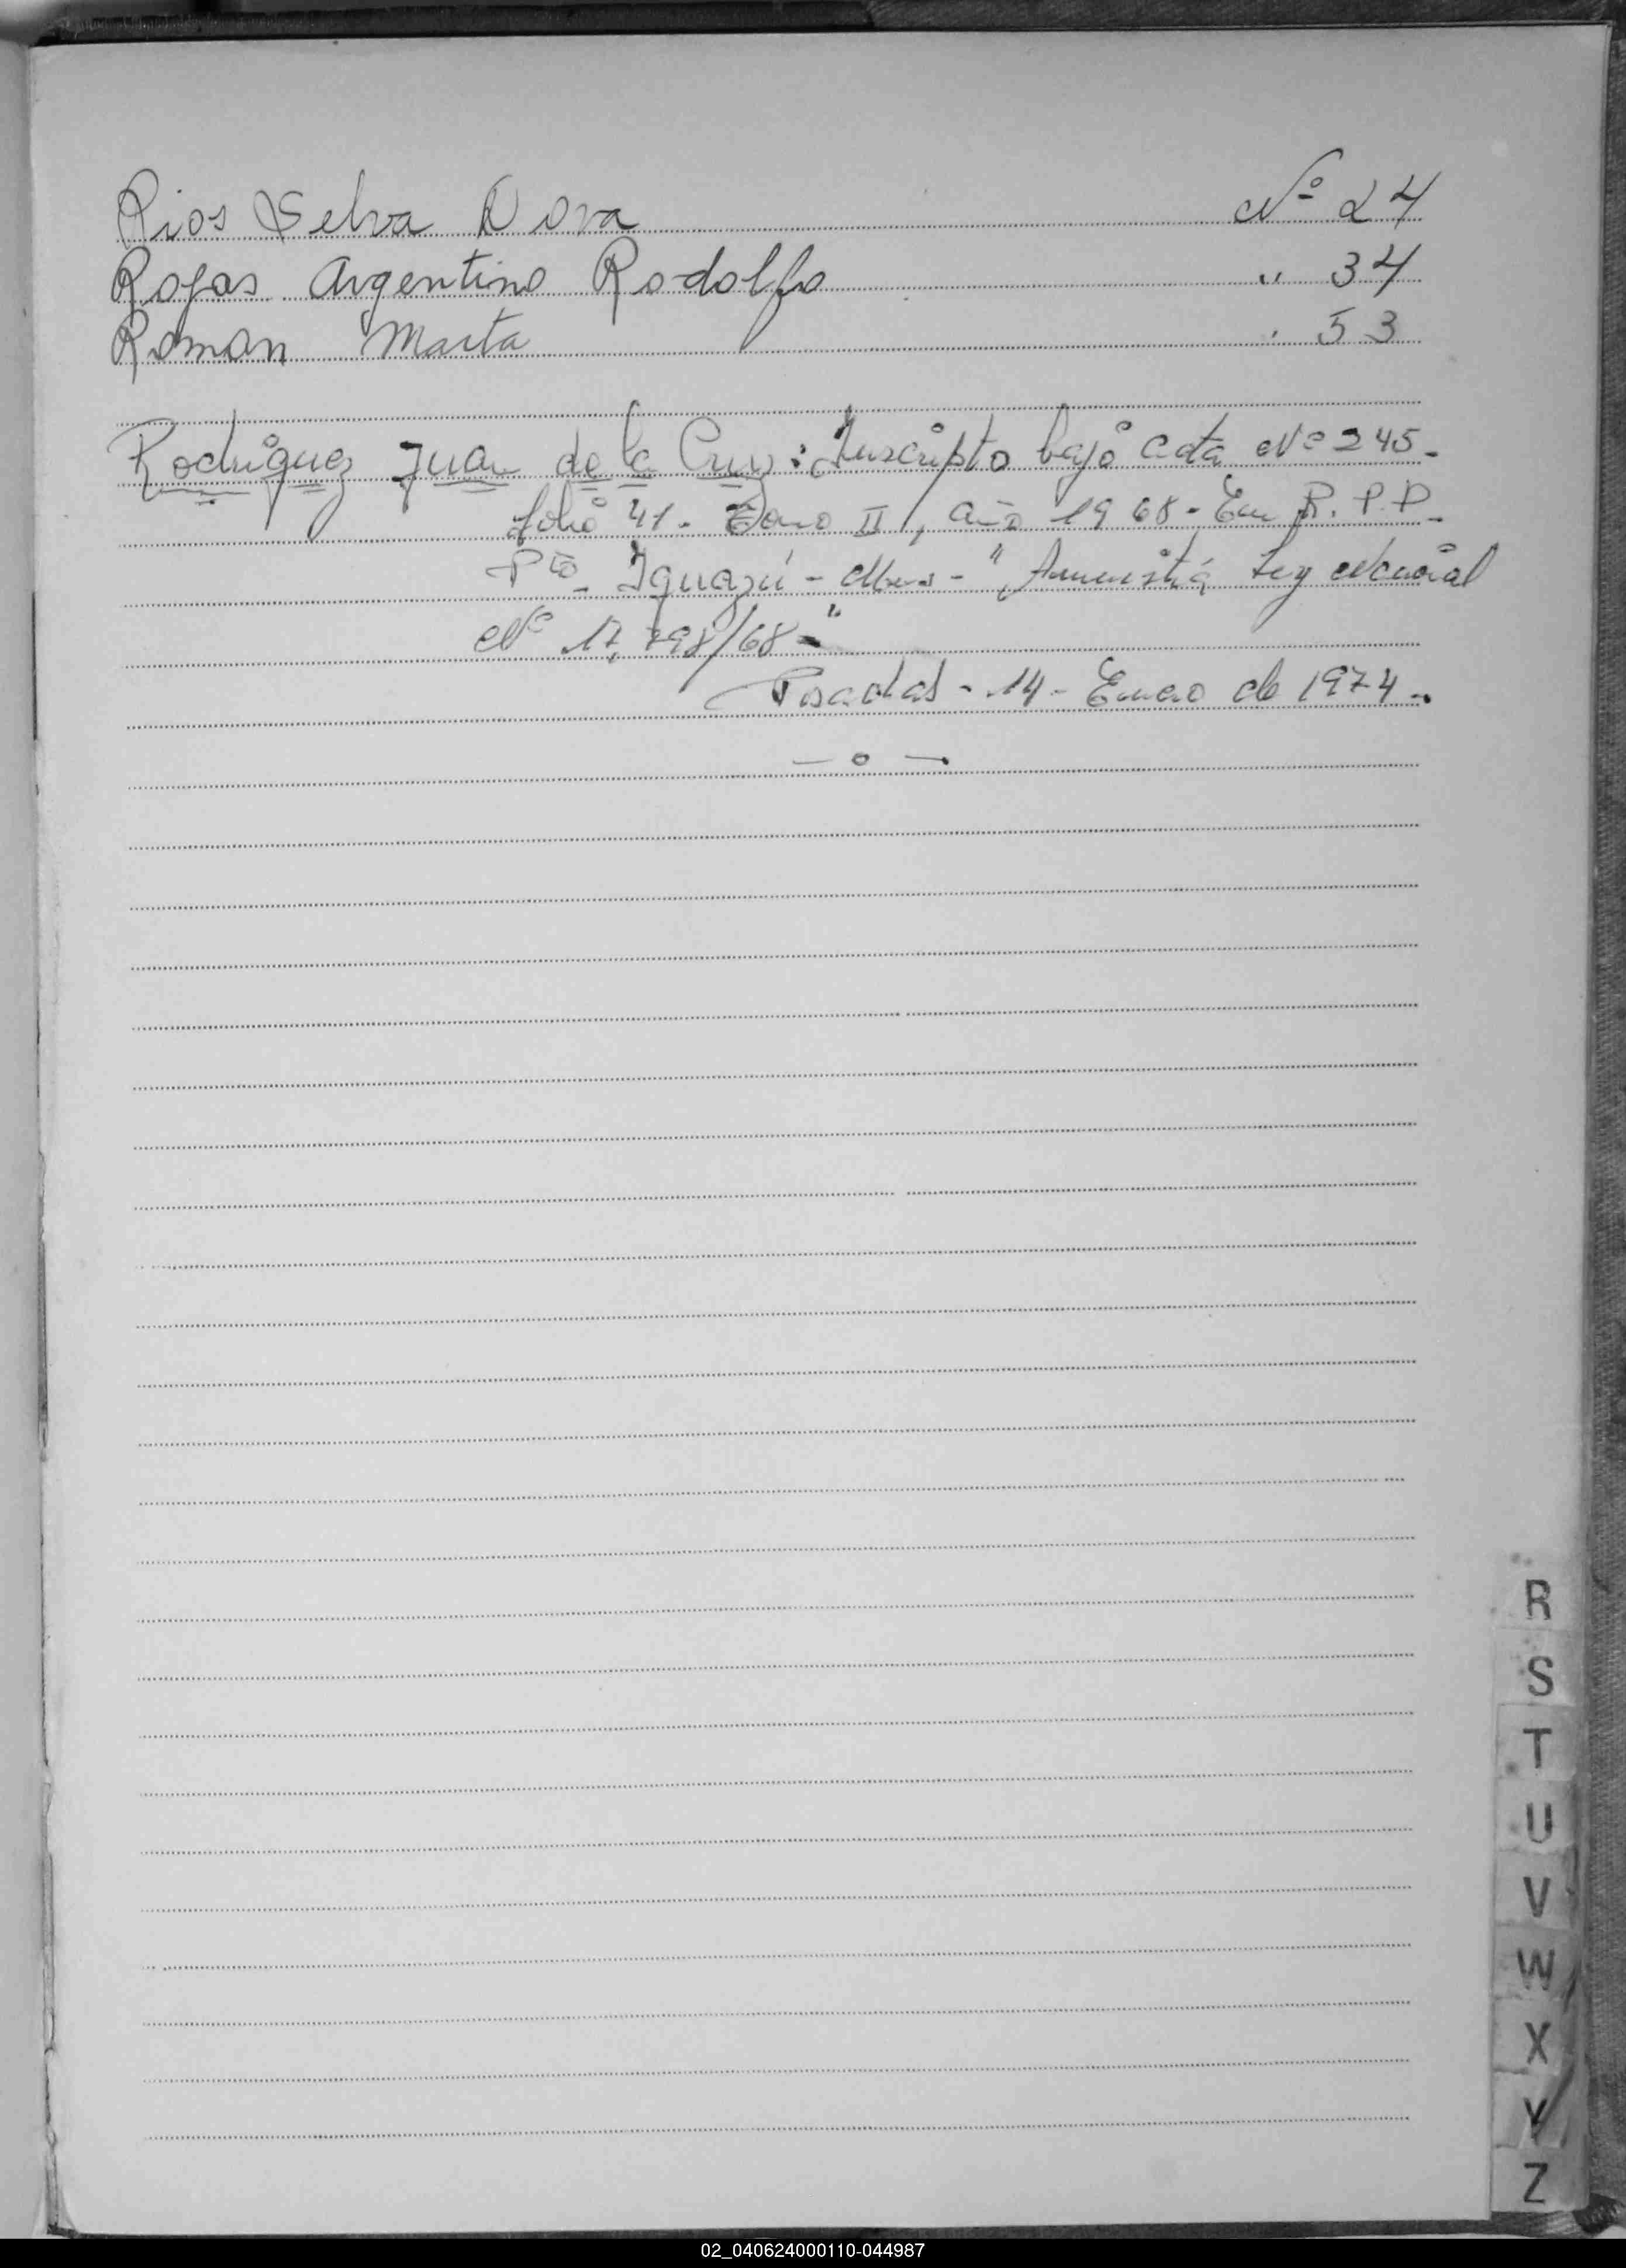 Rios Selva Dora Nº 24
Rojas Argentino Rodolfo " 34
Roman Marta . 53
Rodriguez Juan de la Cruz: Inscripto bajo acta Nº 245.-
folio 41. Tomo II, año 1968 - En R. P. P.
Pto. Iguazú - Mnes - "Amnistía Ley Nacional
Nº 17.798/68 - "
Posadas - 14 - Enero de 1974..
— o —
R
S
T
U
V
W
X
Y
Z
02_040624000110-044987